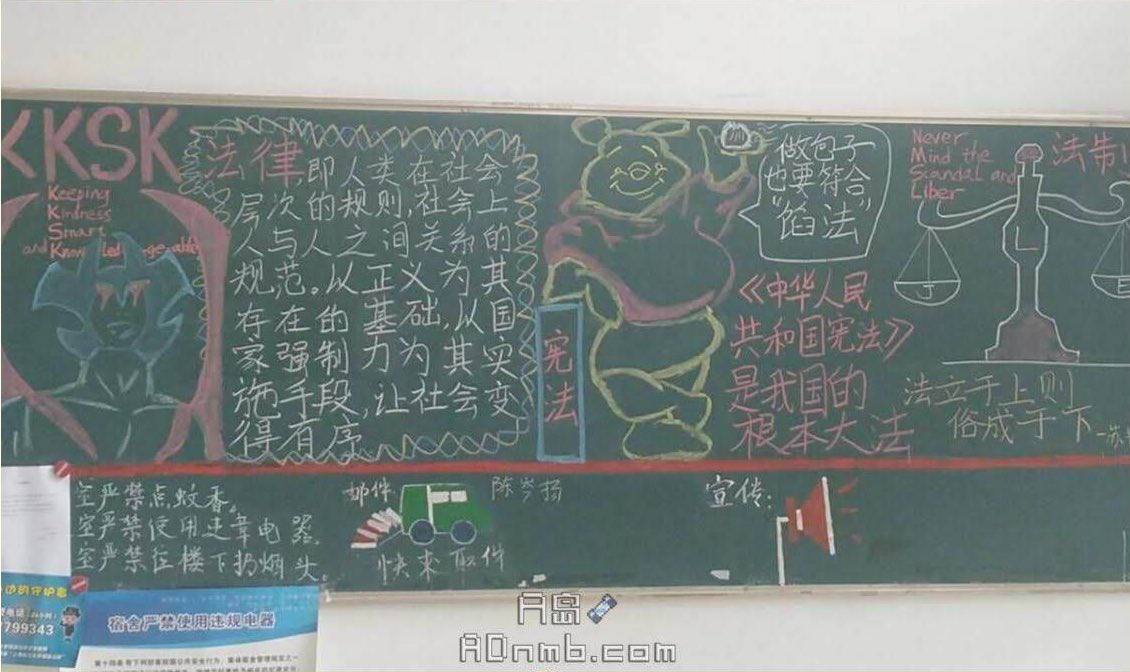 KKSK
Keeping
Kindness
Smart
and Knowledgeable
法律,即人类在社会
层次的规则,社会上
人与人之间关系的
规范。以正义为其
存在的基础,以国
家强制力为其实
施手段,让社会变
得有序
宪法
做包子
也要符合
“馅法”
《中华人民
共和国宪法》
是我国的
根本大法
Never
Mind the
Scandal and
Liber
法制
J
E
法立于上则
俗成于下
室严禁点蚊香。
室严禁使用违章电器。
室严禁往楼下扔烟头。
邮件
快来取件
宣传:
7799343
宿舍严禁使用违规电器
A岛
ADnmb.com